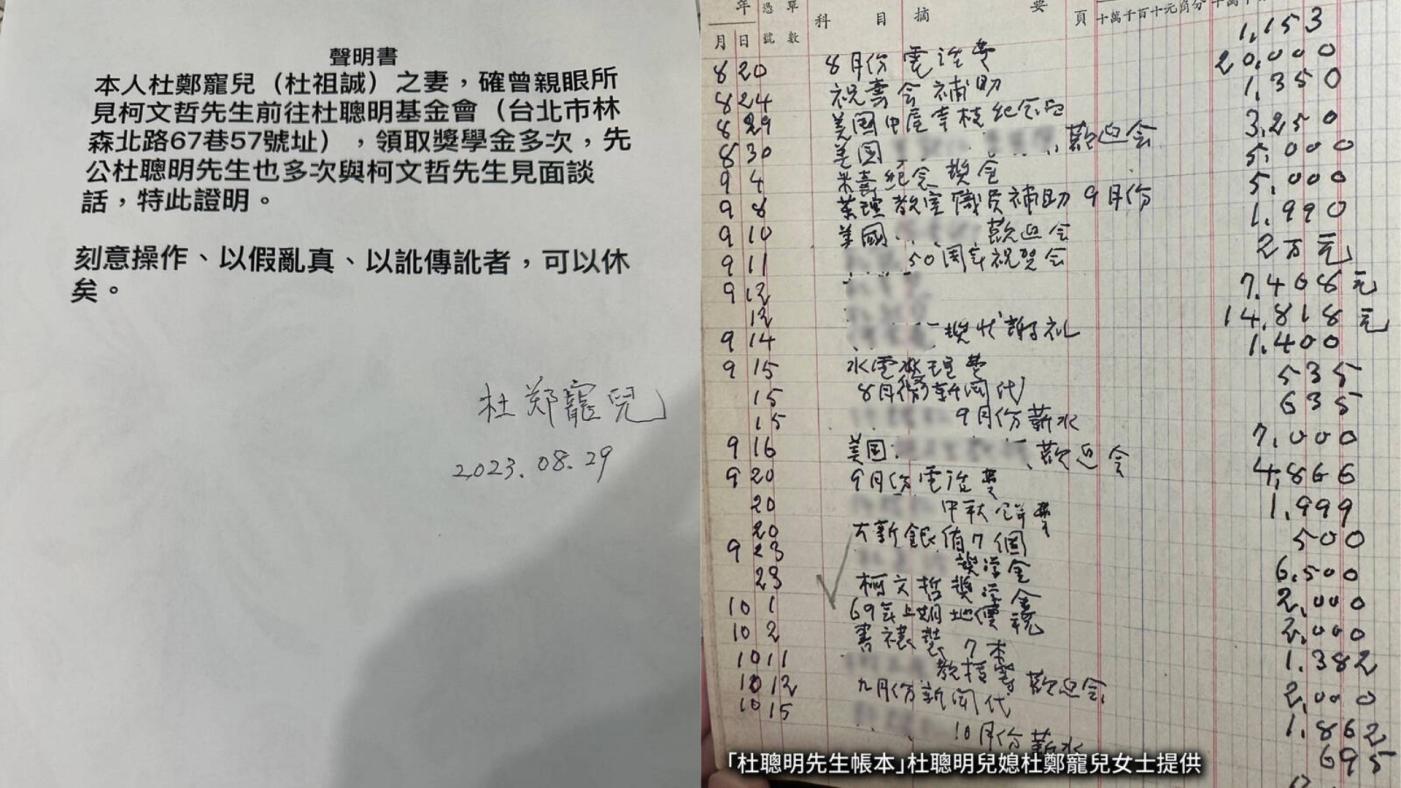 聲明書
本人杜鄭寵兒（杜祖誠）之妻，確曾親眼所
見柯文哲先生前往杜聰明基金會（台北市林
森北路67巷57號址），領取獎學金多次，先
公杜聰明先生也多次與柯文哲先生見面談
話，特此證明。
刻意操作、以假亂真、以訛傳訛者，可以休
矣。
杜郑寵兒
2023.08.29
年
月 日 號 數 科 目 摘 要 頁
1,153
8 20 8月份電話費 20,000
8 24 祝壽会補助 1,350
8 29 美国 紀念品 3,250
8 30 美国 歡迎会 5,000
9 4 米壽紀念獎金 5,000
9 8 藥理教室職員補助 9月份 1,990
9 10 美國 歡迎会 2万元
9 11 50周年祝賀会 7,468元
9 12 14,818元
12 1,400
9 14 獎状謝礼
9 15 水電 費 535
15 8月份新闻代 635
15 9月份薪水 7,000
9 16 美国 歡迎会 4,866
9 20 9月份電話費 1,999
20 中秋 費 500
20 7個 6,500
9 23 獎学金 2,000
23 柯文哲獎学金 2,000
10 1 69年上期地價稅 1,382
10 2 書 裝 7本 2,000
10 11 教授 歡迎会 1,862
10 12 九月份新闻代 695
10 15 10月份薪水
「杜聰明先生帳本」杜聰明兒媳杜鄭寵兒女士提供